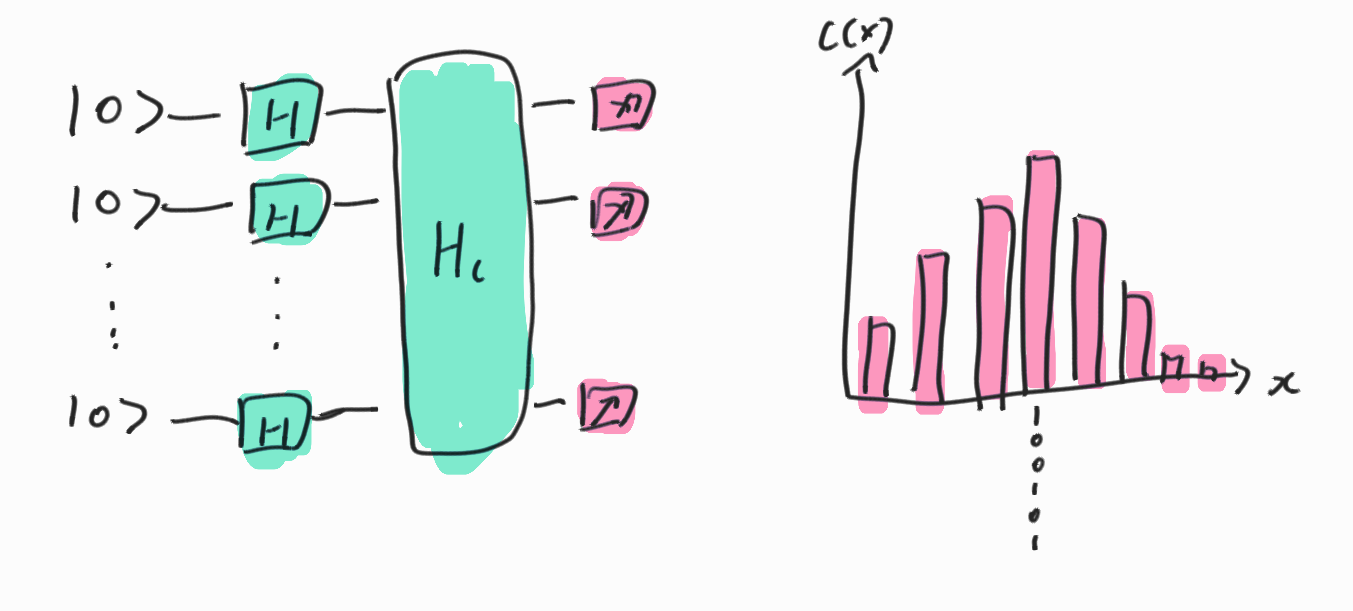 |0> H
|0> H
|0> H
H_c
C(x)
x
1
0
0
1
0
1